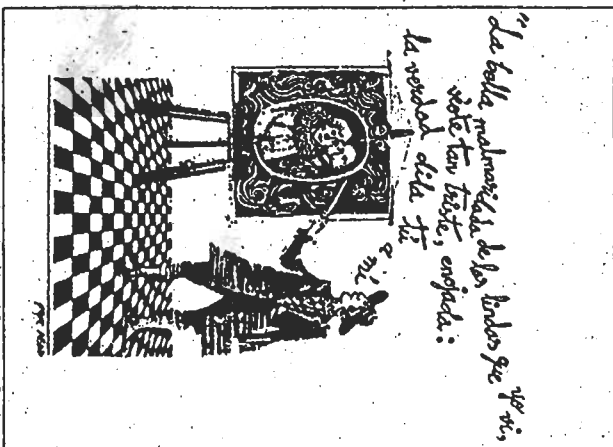 "La bella malmaridada de las lindas que yo vi,
véote tan triste, enojada:
la verdad dila tú
a mí